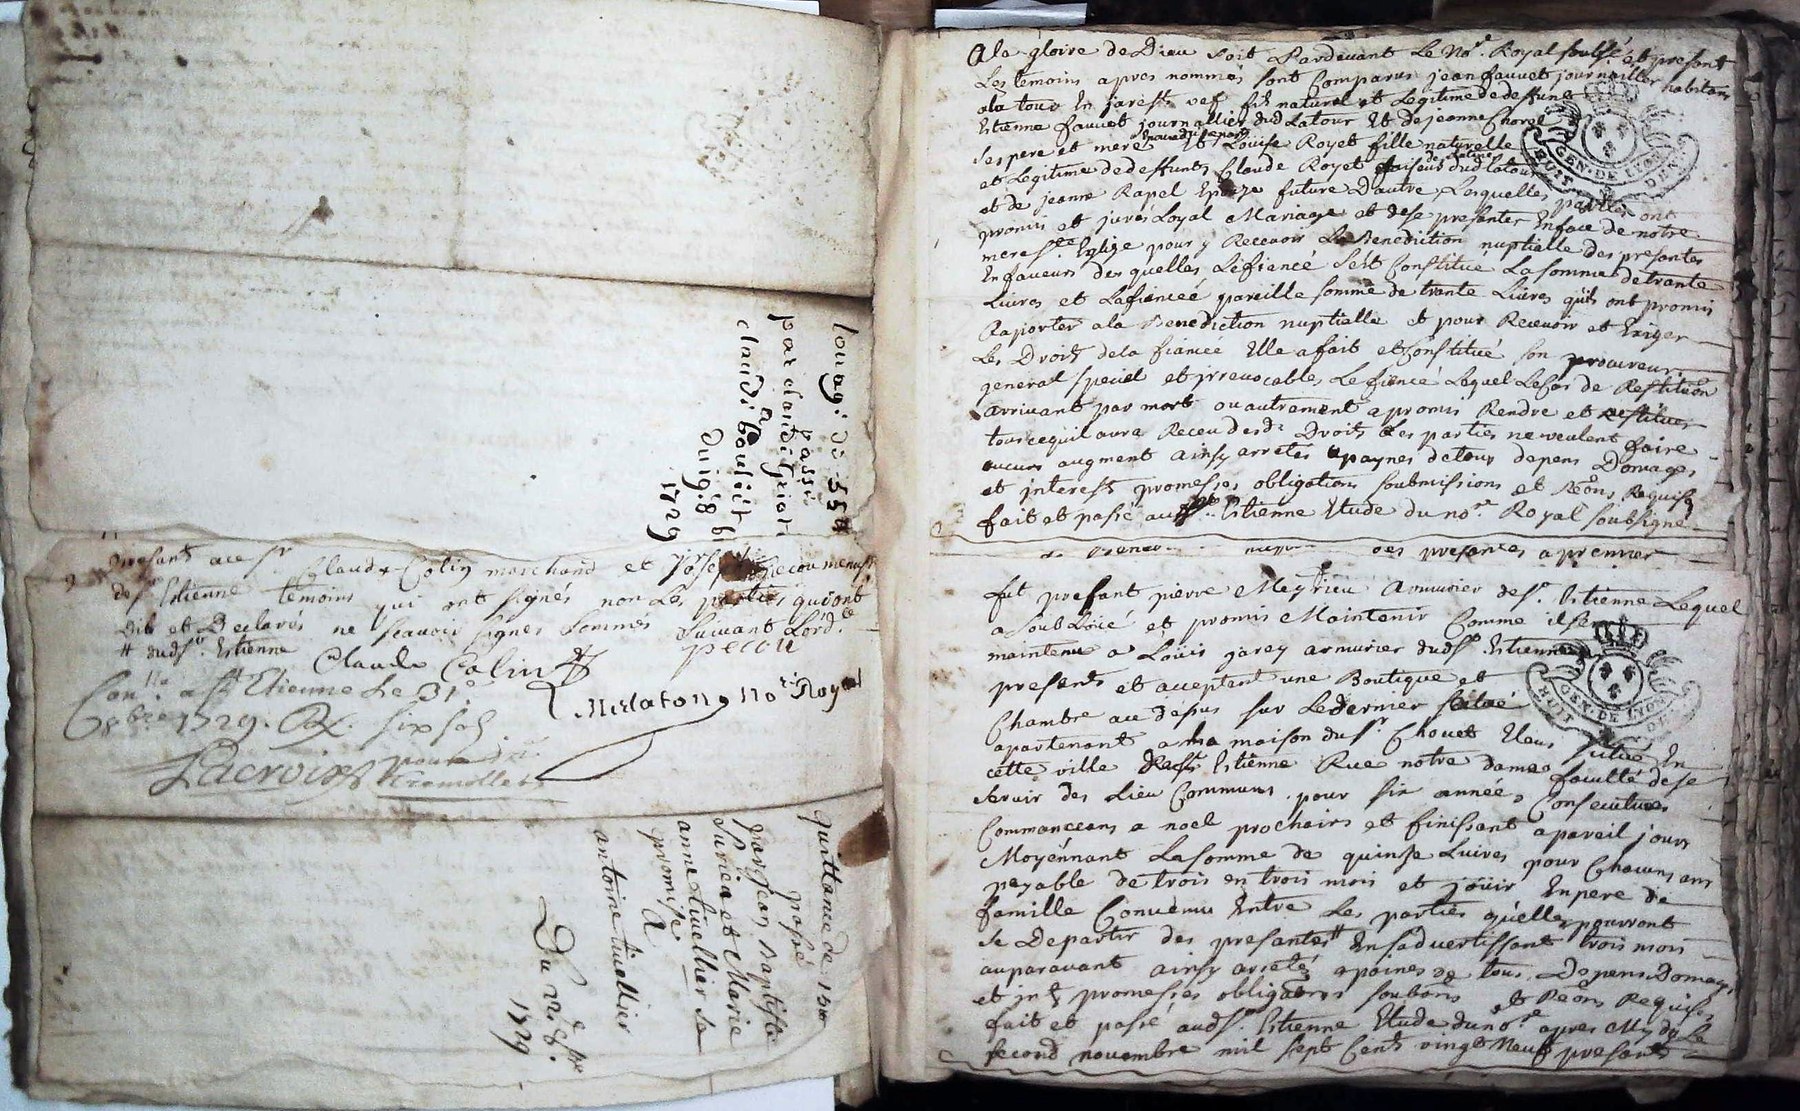 louage de 33#
passé
par claude griat
a
claude boulioit
Du 19 8bre
1729
presents ace sr Claude Colin marchand et Joseph pecou menusr
desr Estienne temoins qui ont signés non Les parties qui ont
Dit et Declarés ne scavoir signer sommés suivant Lord.ce
# dudsr Estienne
Claude Colin pecou
Melaton nore Royal
Con.lle a St Etienne Le 31e
8bre 1729. R. six sols
Lacroix pour
quittance de 150#
passé
par Jean Baptiste
et Marie
anne tivellier sa
promise
A
antoine tivellier
Du 8bre
1729
A la gloire de Dieu soit Pardevant Le Nore Royal soussé et presents
Les temoins apres nommés sont Comparus jean fauvet journallier habitant
ala tour En jarest fils naturel et Legitime de deffunt
Estienne fauvet journallier dud Latour Et de jeanne Chorel
ses pere et mere Et Loüise Royet fille naturelle
et Legitime de deffunts Claude Royet faiseur dud Latour
et de jeanne Rapel Epouze future Dautre, Lesquelles parties ont
promis et jurés Loyal Mariage et dese presenter Enface de notre
mere ste Eglize pour y Recevoir La Benediction nuptielle des presantes
Enfaveurs des quelles Lefiancé sest Constitué La somme de trante
Livres et Lafiancée pareille somme de trante Livres quils ont promis
Raporter ala Benediction nuptielle et pour Recevoir et Exiger
Les Droits dela fiancée Elle a fait et Constitué son procureur
general special et irrevocable Le fiancé Lequel Le Cas de Restitution
arrivant par mort ou autrement a promis Rendre et restituer
tous cequil aura Receu desds Droits Les parties ne veulent faire
aucuns augment ainsy arretés apaynes detous depens Domages
et interests promesses obligations soubmissions et Reons Requises
fait et passé aud st Estienne Etude du nore Royal soubsigné
des presantes a premier
fut present pierre Meyrieu Armurier desr Estienne Lequel
a soubLoüé et promis Maintenir Comme
maintenu a Loüis garey armurier dudsr Estienne
present et acceptent une Boutique et
Chambre au depus sur Ledernier
apartenant a la maison dusr Chovet situé En
cette ville de st Estienne Rue notre dame faculté de se
servir des Lieu Communs pour six années Consecutives
Commancants a noel prochains et finissant apareil jours
Moyénnant La somme de quinse Livres pour Chacuns ans
payable de trois en trois mois et joüir Enpere de
famille Convenu Entre Les parties quelles pourront
se Departir des presantes Ensadvertissant trois mois
auparavant ainsy arreté apaines de tous Depens Domages
et ints promesses obligations soubons et Reons Requises
fait et passé audsr Estienne Etude dunore apres Midy Le
second novembre mil sept Cents vingt neuf presants
GEN. DE LYON
HUIT DEN.
GEN. DE LYON
HUIT DE